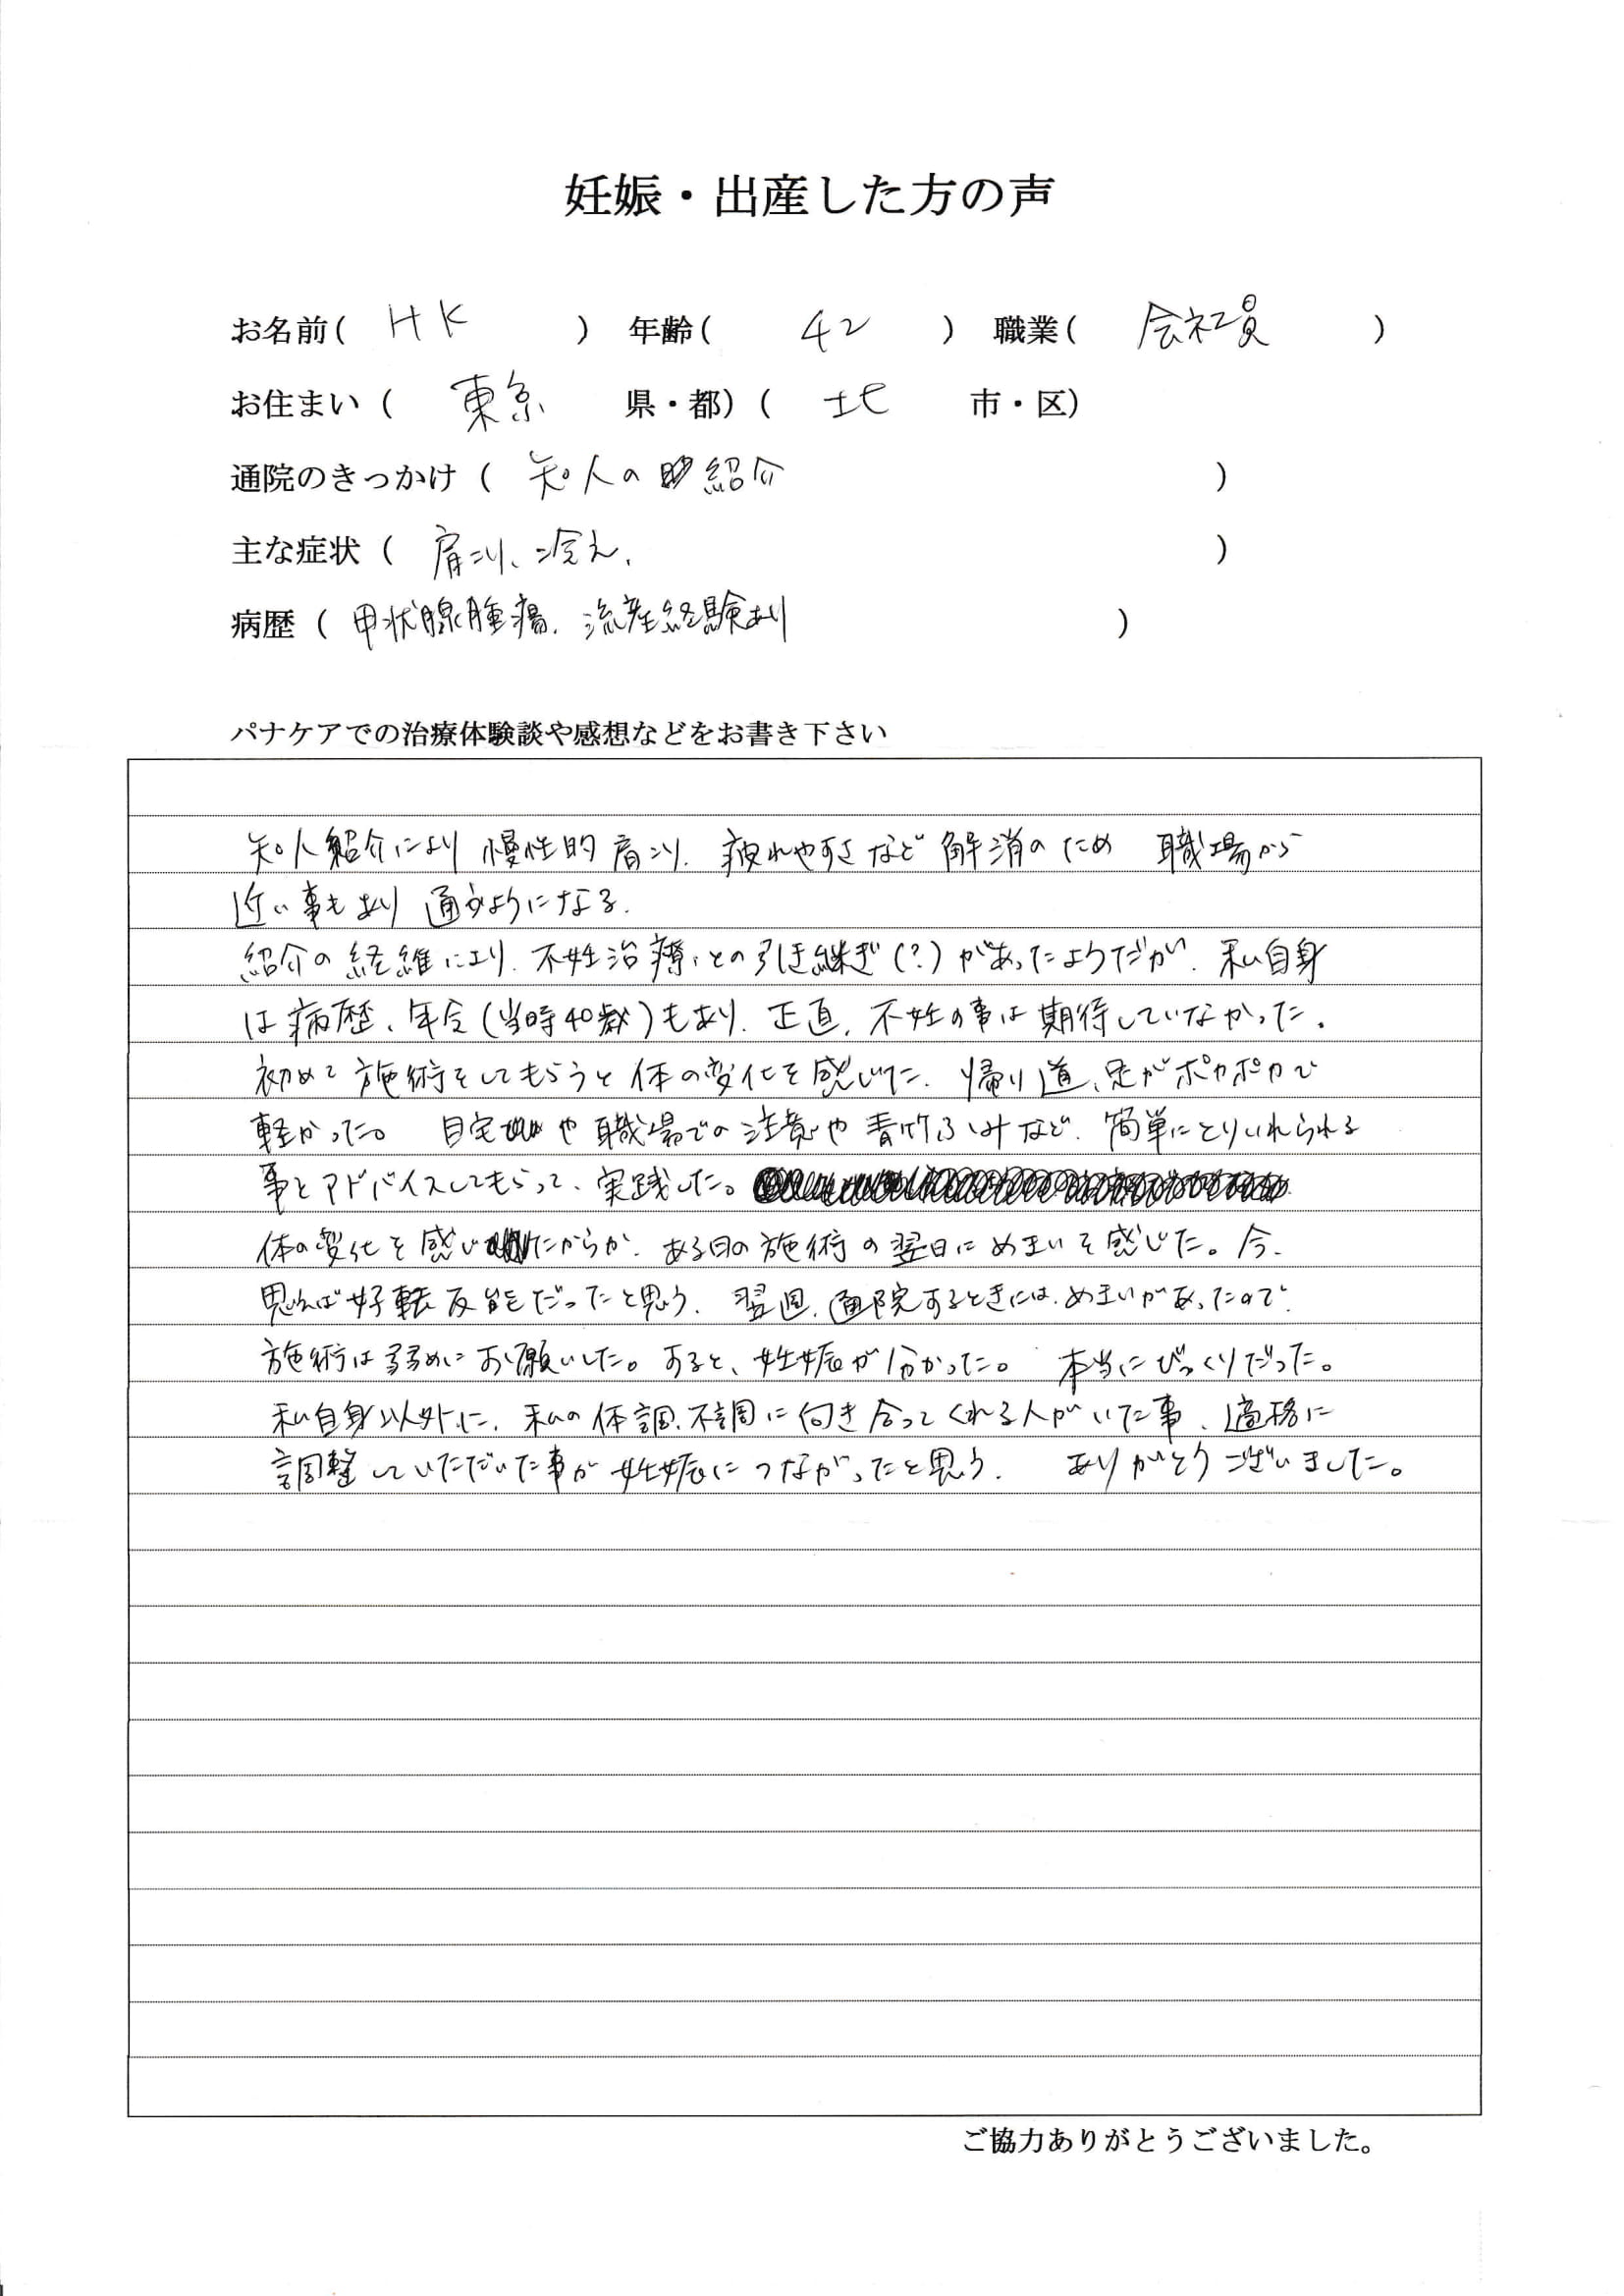 妊娠・出産した方の声
お名前( HK ) 年齢( 42 ) 職業( 会社員 )
お住まい( 東京 県・都)( 北 市・区)
通院のきっかけ( 知人の紹介 )
主な症状( 肩こり、冷え、 )
病歴( 甲状腺腫瘍、流産経験あり )
パナケアでの治療体験談や感想などをお書き下さい
知人紹介により 慢性的肩こり、疲れやすさなど解消のため 職場から
近い事もあり 通うようになる。
紹介の経維により、不妊治療との引き継ぎ(?)があったようだが、私自身
は病歴、年令(当時40歳)もあり、正直、不妊の事は期待していなかった。
初めて施術をしてもらうと体の変化を感じた。帰り道、足がポカポカで
軽かった。 自宅や職場での注意や青竹ふみなど、簡単にとりいれられる
事とアドバイスしてもらって、実践した。
体の変化を感じたからか、ある日の施術の翌日にめまいを感じた。今、
思えば好転反能だったと思う。翌週、通院するときには、めまいがあったので、
施術は弱めにお願いした。すると、妊娠が分かった。 本当にびっくりだった。
私自身以外に、私の体調、不調に向き合ってくれる人がいた事、適格に
調整していただいた事が妊娠につながったと思う。 ありがとうございました。
ご協力ありがとうございました。